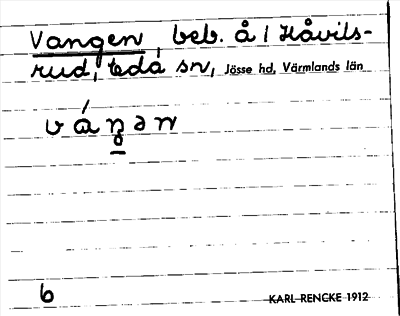 Vangen, beb. å 1 Håvils-
rud, Eda sn, Jösse hd, Värmlands län
váŋ̱ən
6
KARL RENCKE 1912